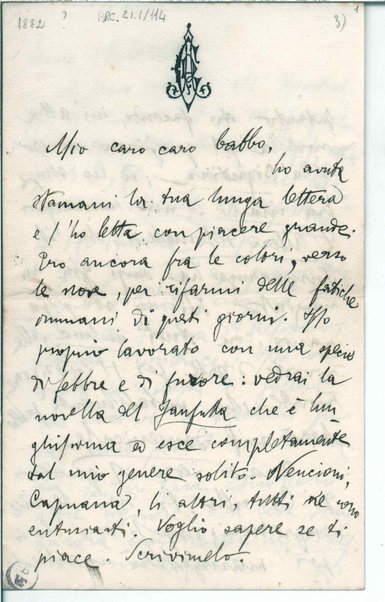 1882 ? ARC. 21.I/114 3) 1
Mio caro caro babbo,
ho avuta
stamani la tua lunga lettera
e l'ho letta con piacere grande.
Ero ancora fra le coltri, verso
le nove, per rifarmi delle fatiche
immani di questi giorni. Ho
proprio lavorato con una specie
di febbre e di furore: vedrai la
novella del Fanfulla che è lun
ghissima ed esce completamente
dal mio genere solito. Nencioni,
Capuana, li altri, tutti ne sono
entusiasti. Voglio sapere se ti
piace. Scrivimelo.